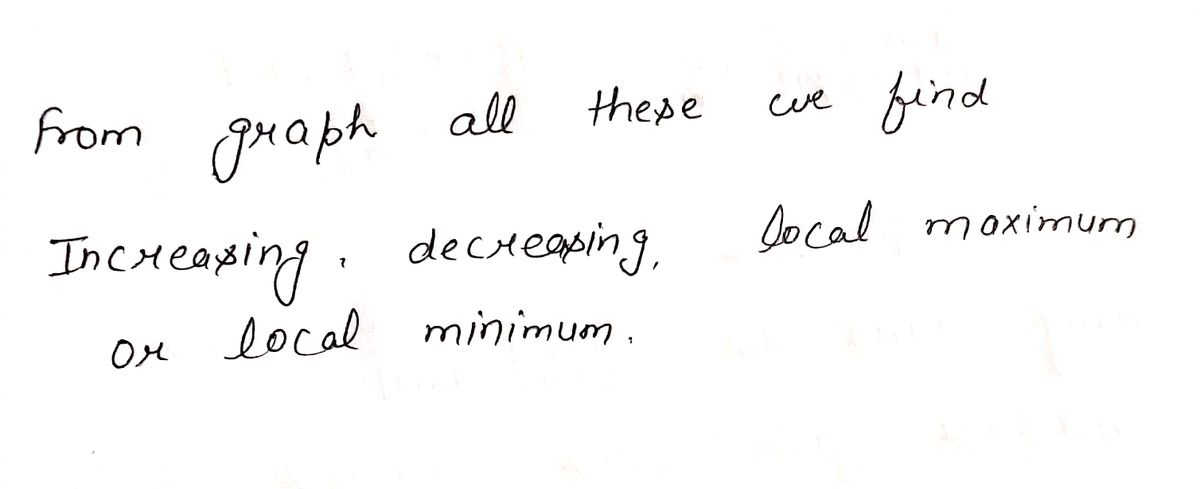 From graph all these we find
Increasing, decreasing, local maximum
or local minimum.